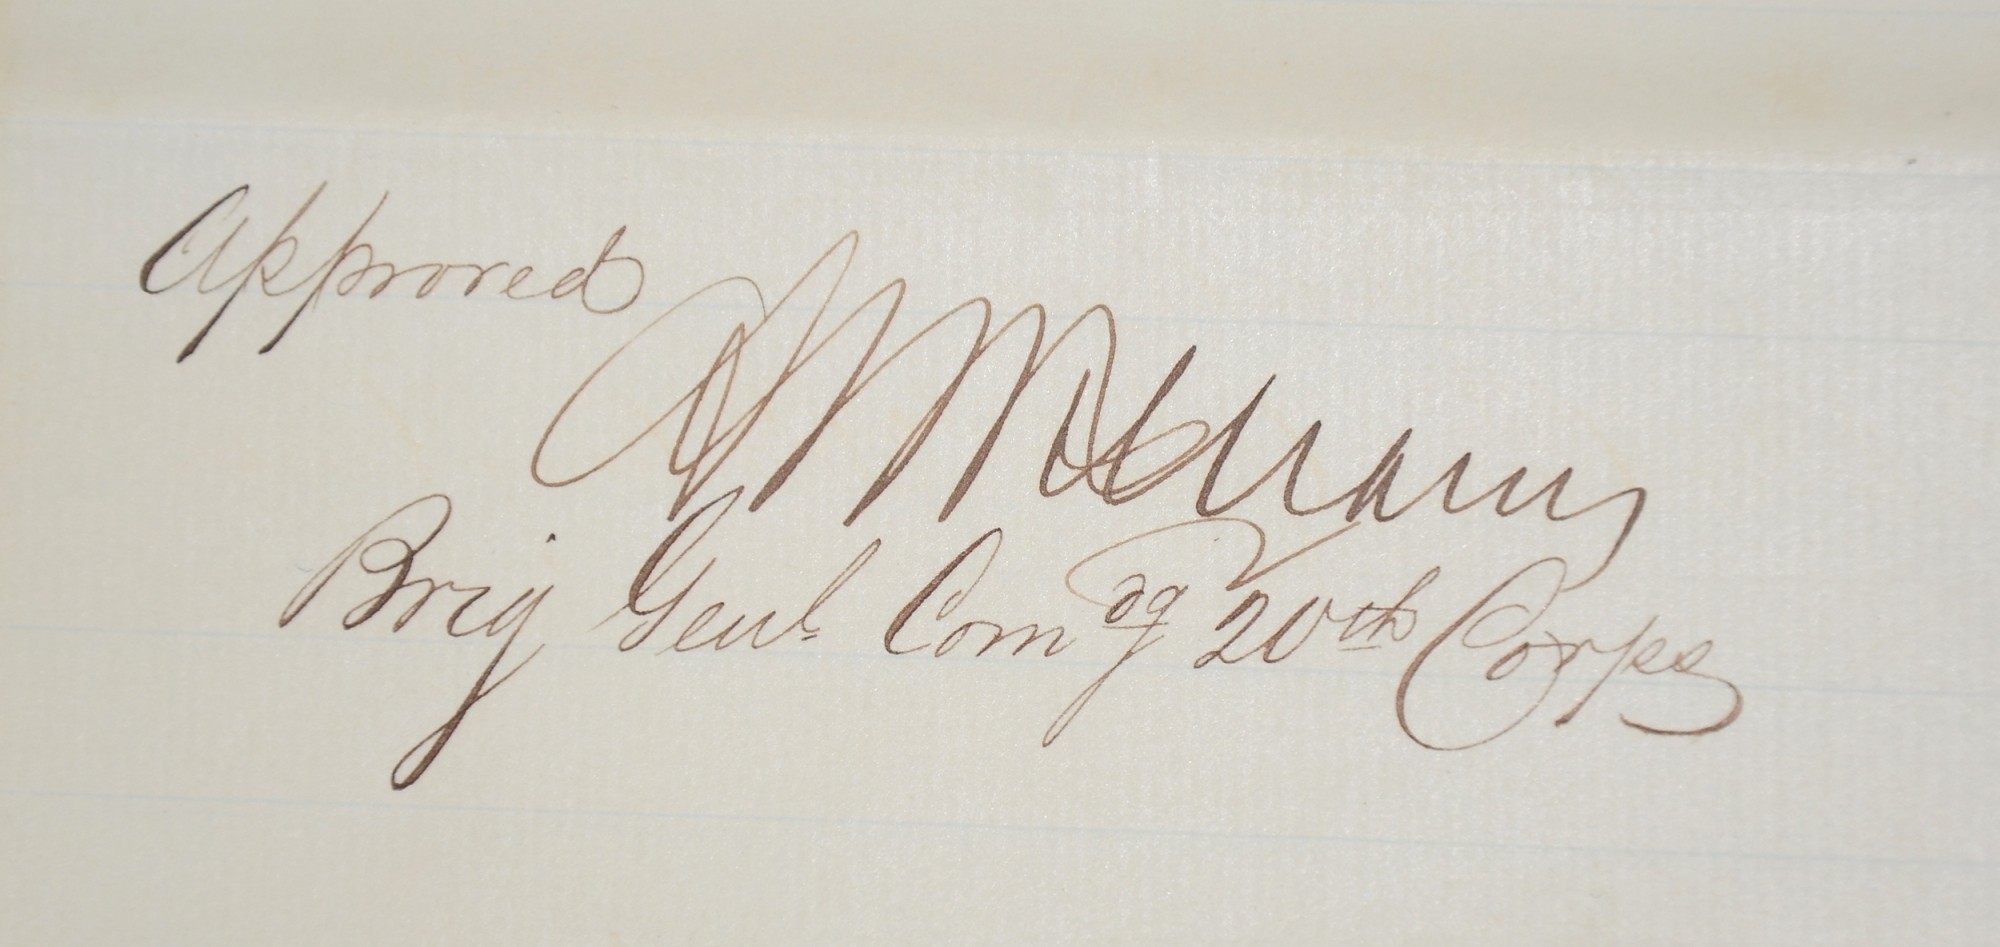 Approved
A S Williams
Brig Genl Comdg 20th Corps